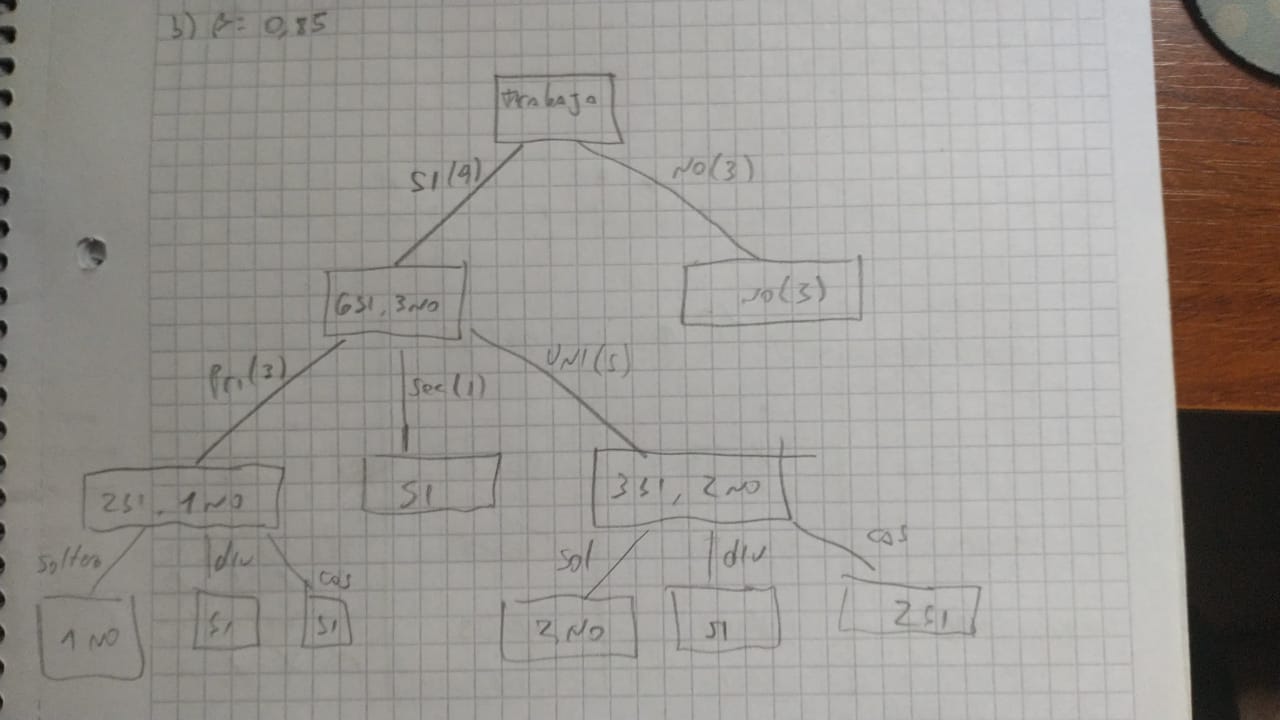 b) β = 0,85
trabaja
SI(9)
NO(3)
6SI, 3NO
NO(3)
Pri(3)
Sec(1)
UNI(5)
2SI, 1NO
SI
3SI, 2NO
soltero
div
cas
sol
div
cas
1 NO
SI
SI
2 NO
SI
2 SI